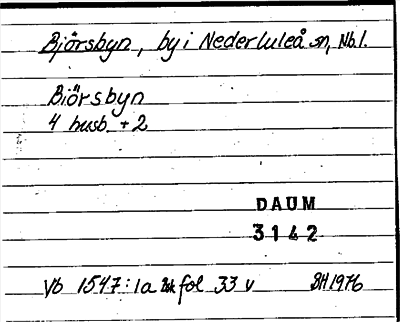 Björsbyn, by i Nederluleå sn, Nb.l.
Biörsbyn
4 husb. + 2
DAUM
3142
Vb 1547:1a fol 33 v BH1976